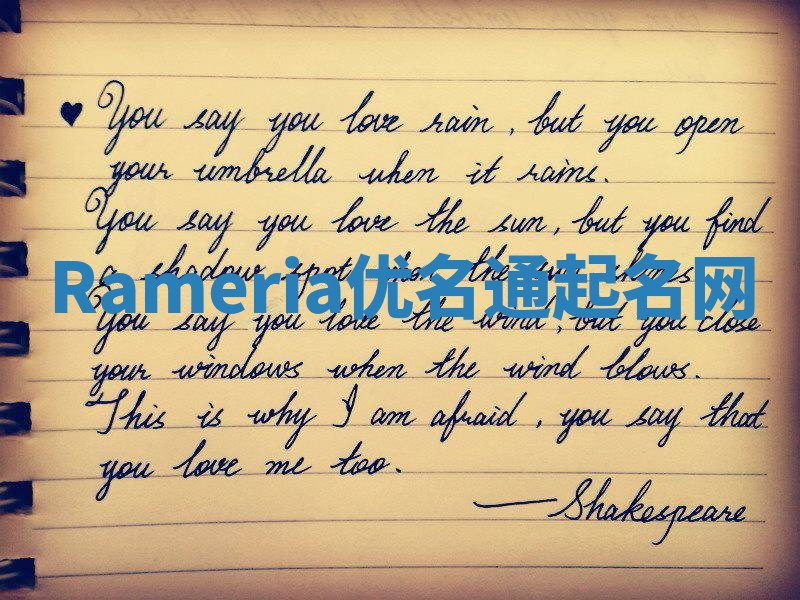 ♥ You say you love rain, but you open
your umbrella when it rains.
You say you love the sun, but you find
a shadow spot when the sun shines
Rameria优名通起名网
You say you love the wind, but you close
your windows when the wind blows.
This is why I am afraid, you say that
you love me too.
—Shakespeare